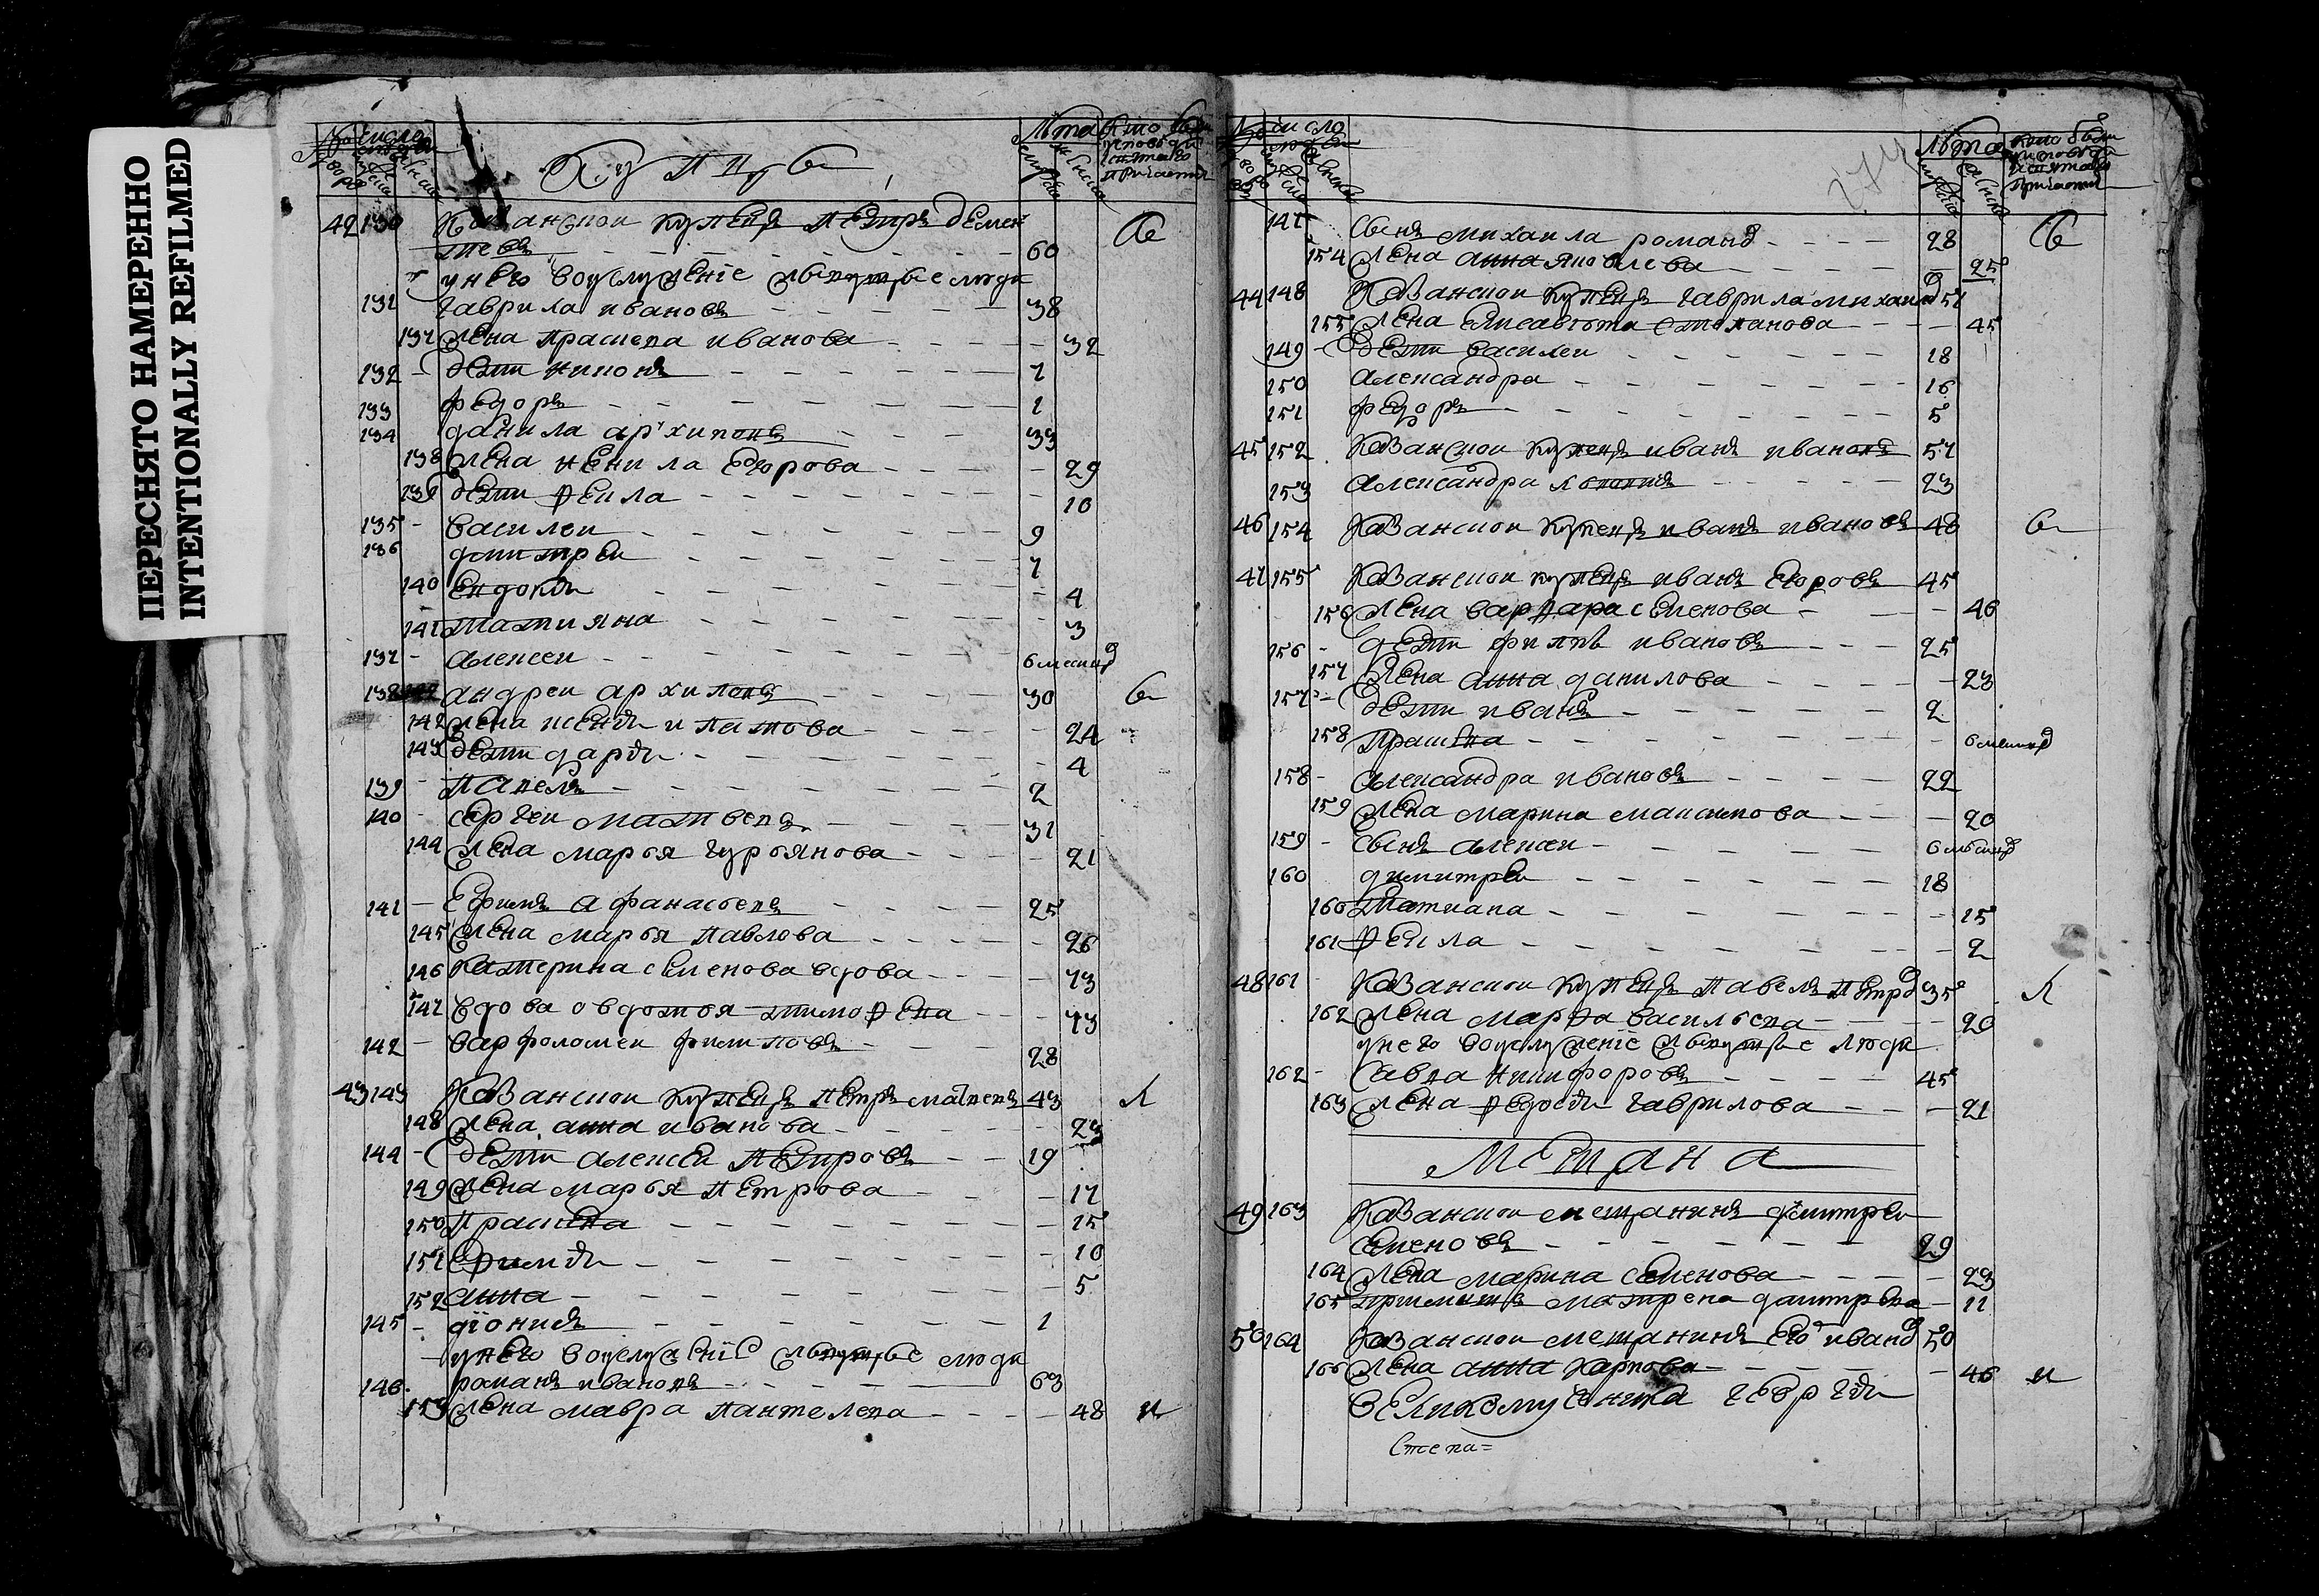 ПЕРЕСНЯТО НАМЕРЕННО
INTENTIONALLY REFILMED
Купцы
Лѣта
42 130 Казанскои купецъ Петръ Демен
тьевъ 60
у него воуслуженiе живущые люди
131 Гаврила Ивановъ 38
137 Жена Праскева Иванова 32
132 дети Никонъ 7
133 Федоръ 1
134 Данила Архиповъ 33
138 Жена Ненила Егорова 29
139 дети Фекла 10
135 Василеи 9
136 Дмитреи 7
140 Евдокѣя 4
141 Татияна 3
137 Алексеи 6 месяцо
138 Андреи Архиповъ 30
142 Жена Ксенѣя Ипатова 24
143 дети Дарѣя 4
139 Павелъ 2
140 Сергеи Матвевъ 31
144 Жена Марья Гурьянова 21
141 Ефимъ Афанасьевъ 25
145 Жена Марья Павлова 26
146 Катерина Семенова вдова 73
147 вдова Овдотья Тимофева 43
142 Варфоломеи Филиповъ 28
43 143 Казанскои купецъ Петръ Матвевъ 43 Л
148 Жена Анна Иванова 23
144 дети Алексеи Петровъ 19
149 Жена Марья Петрова 17
150 Праскева 15
151 Ефимѣя 10
152 Анна 5
145 Дiонисѣ 1
у него воуслуженiе живущые люди
146 Романъ Ивановъ 63
153 Жена Мавра Пантелева 48 и
число
274
Лѣта
147 Сынъ Михаила Романо 28
154 Жена Анна Яковлева 25
44 148 Казанскои купецъ Гаврила Михаило 51
155 Жена Елисавѣта Степанова 45
149 дети Василеи 18
150 Александра 16
151 Федоръ 5
45 152 Казанскои купецъ Иванъ Ивановъ 57
153 Александра 23
46 154 Казанскои купецъ Иванъ Ивановъ 48
47 155 Казанскои купецъ Иванъ Егоровъ 45
156 Жена Варвара Семенова 46
156 дети Филипъ Ивановъ 25
157 Жена Анна Данилова 23
157 дети Иванъ 2
158 Праскева 6 месяцо
158 Александра Ивановъ 22
159 Жена Марина Максимова 20
159 Сынъ Алексеи 6 месяцо
160 Димитреи 18
160 Татиана 15
161 Фекла 2
48 161 Казанскои купецъ Павелъ Петро 35 Л
162 Жена Марфа Васильева 20
у него воуслуженiе живущые люди
162 Савва Никифоровъ 45
163 Жена Федосѣя Гаврилова 21
Мещана
49 163 Казанскои мещанинъ Дмитреи
Семеновъ 29
164 Жена Марина Семенова 23
165 Матрена Дмитрева 11
50 164 Казанскои мещанинъ Его Ивано 50
166 Жена Анна Карпова 46 и
Великомученика Георгѣя
Степа=